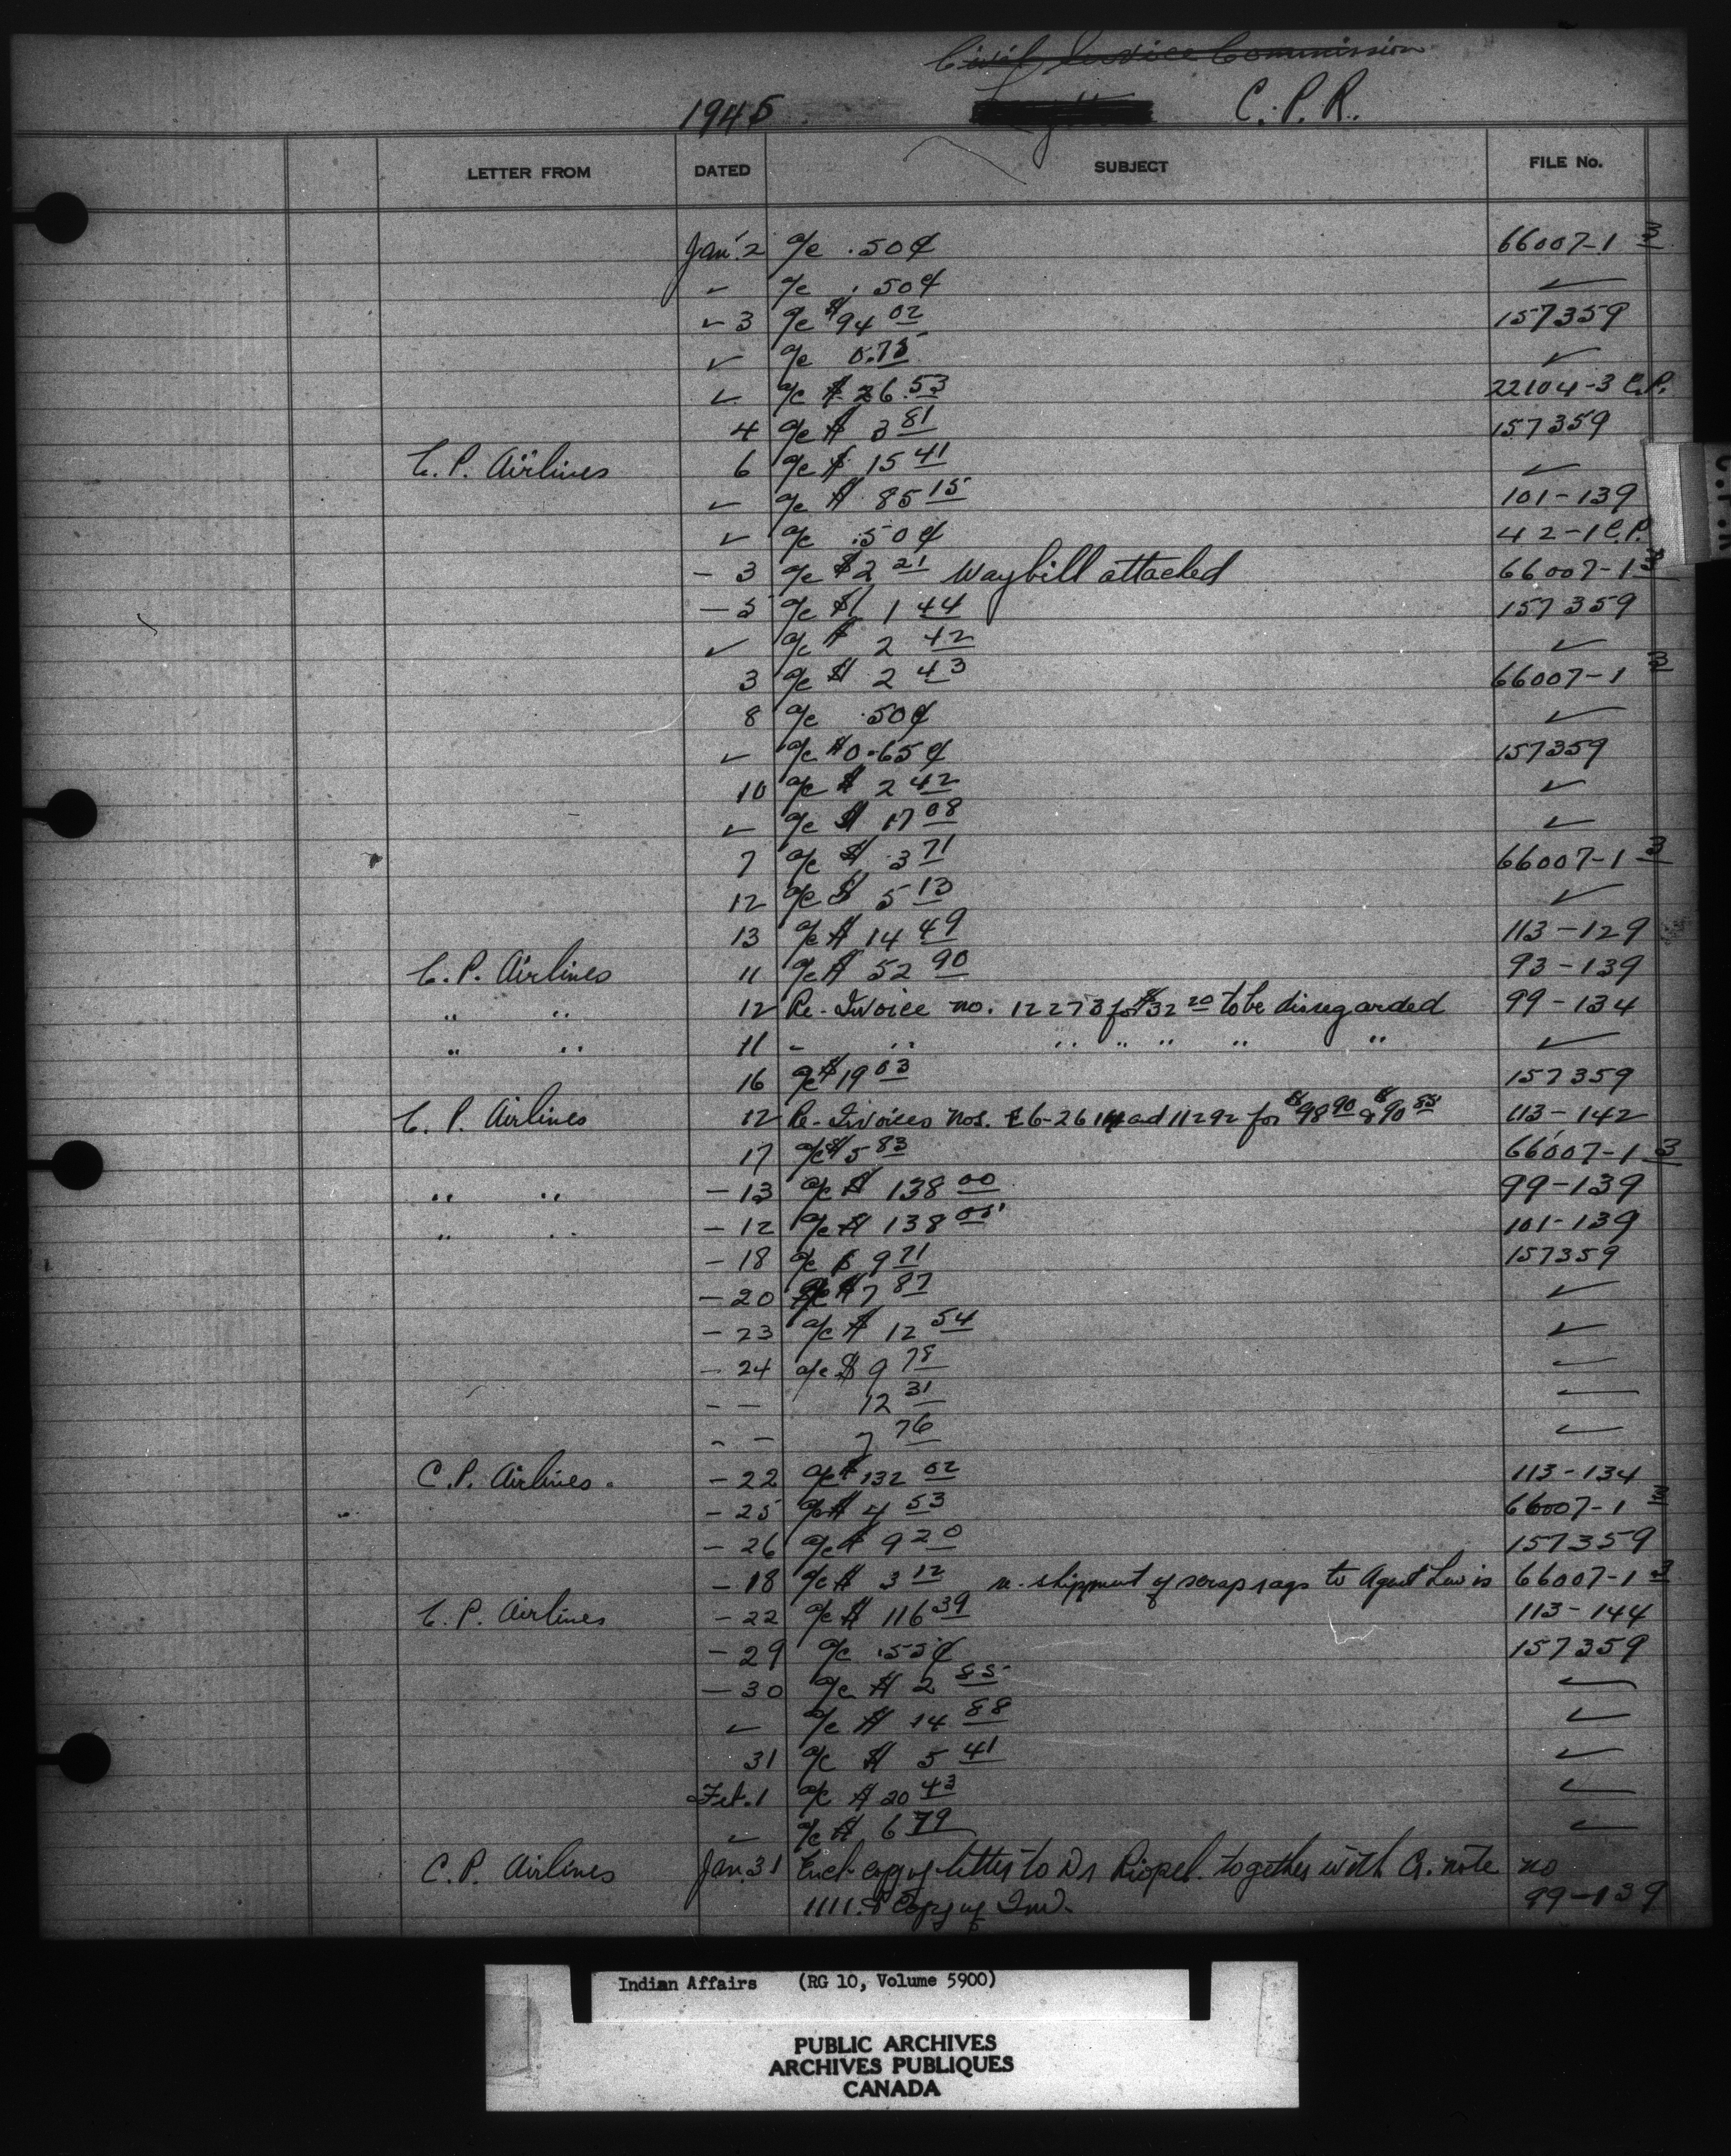 Civil Service Commission
1945 C.P.R.
LETTER FROM DATED SUBJECT FILE No.
Jan. 2 a/c .50¢ 66007-1 3
✓ a/c .50¢ ✓
✓ 3 a/c $94 02 157359
✓ a/c 0.75 ✓
✓ a/c $ 26.53 22104-3 C.P.
4 a/c $ 3 81 157359
C.P. Airlines 6 a/c $ 15 41 ✓
✓ a/c $ 85 15 101-139
✓ a/c .50¢ 42-1 C.P.
- 3 a/c $2 21 Waybill attached 66007-1 3
- 5 a/c $ 1 44 157359
✓ a/c $ 2 42 ✓
3 a/c $ 2 43 66007-1 3
8 a/c .50¢ ✓
✓ a/c $0.65¢ 157359
10 a/c $ 2 42 ✓
✓ a/c $ 17 08 ✓
7 a/c $ 3 71 66007-1 3
12 a/c $ 5 13 ✓
13 a/c $ 14 49 113-129
C.P. Airlines 11 a/c $ 52 90 93-139
" " 12 Re-Invoice no. 12273 for $32 20 to be disregarded 99-134
" " 11 - " " " " " " ✓
16 a/c $19 03 157359
C.P. Airlines 12 Re-Invoices Nos. and 11292 for $98 90 & $90 85 113-142
17 a/c $5 83 66007-1 3
" " - 13 a/c $ 138 00 99-139
" " - 12 a/c $ 138 05 101-139
- 18 a/c $ 9 71 157359
- 20 a/c $7 87 ✓
- 23 a/c $ 12 54 ✓
- 24 a/c $ 9 78 ✓
- - 12 31 ✓
- - 7 76 ✓
C.P. Airlines. - 22 a/c $132 02 113-134
- 25 a/c $ 4 53 66007-1 3
- 26 a/c $ 9 20 157359
- 18 a/c $ 3 12 re. shipment of scrap rags to Agent Lewis 66007-1 3
C.P. Airlines - 22 a/c $ 116 39 113-144
- 29 a/c .55¢ 157359
- 30 a/c $ 2 85 ✓
✓ a/c $ 14 88 ✓
31 a/c $ 5 41 ✓
Feb. 1 a/c $ 20 43 ✓
✓ a/c $ 6 79 ✓
C.P. Airlines Jan. 31 Encl. copy of letter to Dr Riopel. together with Cr. note no
1111. & Copy of Inv. 99-139
Indian Affairs (RG 10, Volume 5900)
PUBLIC ARCHIVES
ARCHIVES PUBLIQUES
CANADA